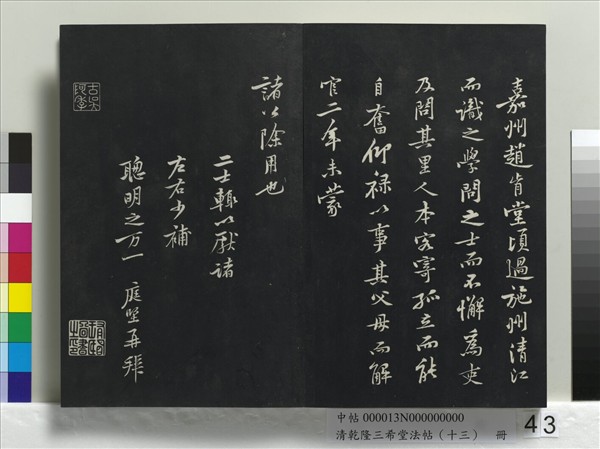 嘉州趙肯堂頃過施州清江
而識之學問之士而不懈為吏
及問其里人本客寄孤立而能
自奮仰祿以事其父母而解
官二年未蒙
諸公除用也
二士輒以獻諸
左右少補
聰明之万一 庭堅再拜
中帖 000013N000000000
清乾隆三希堂法帖(十三) 冊
43